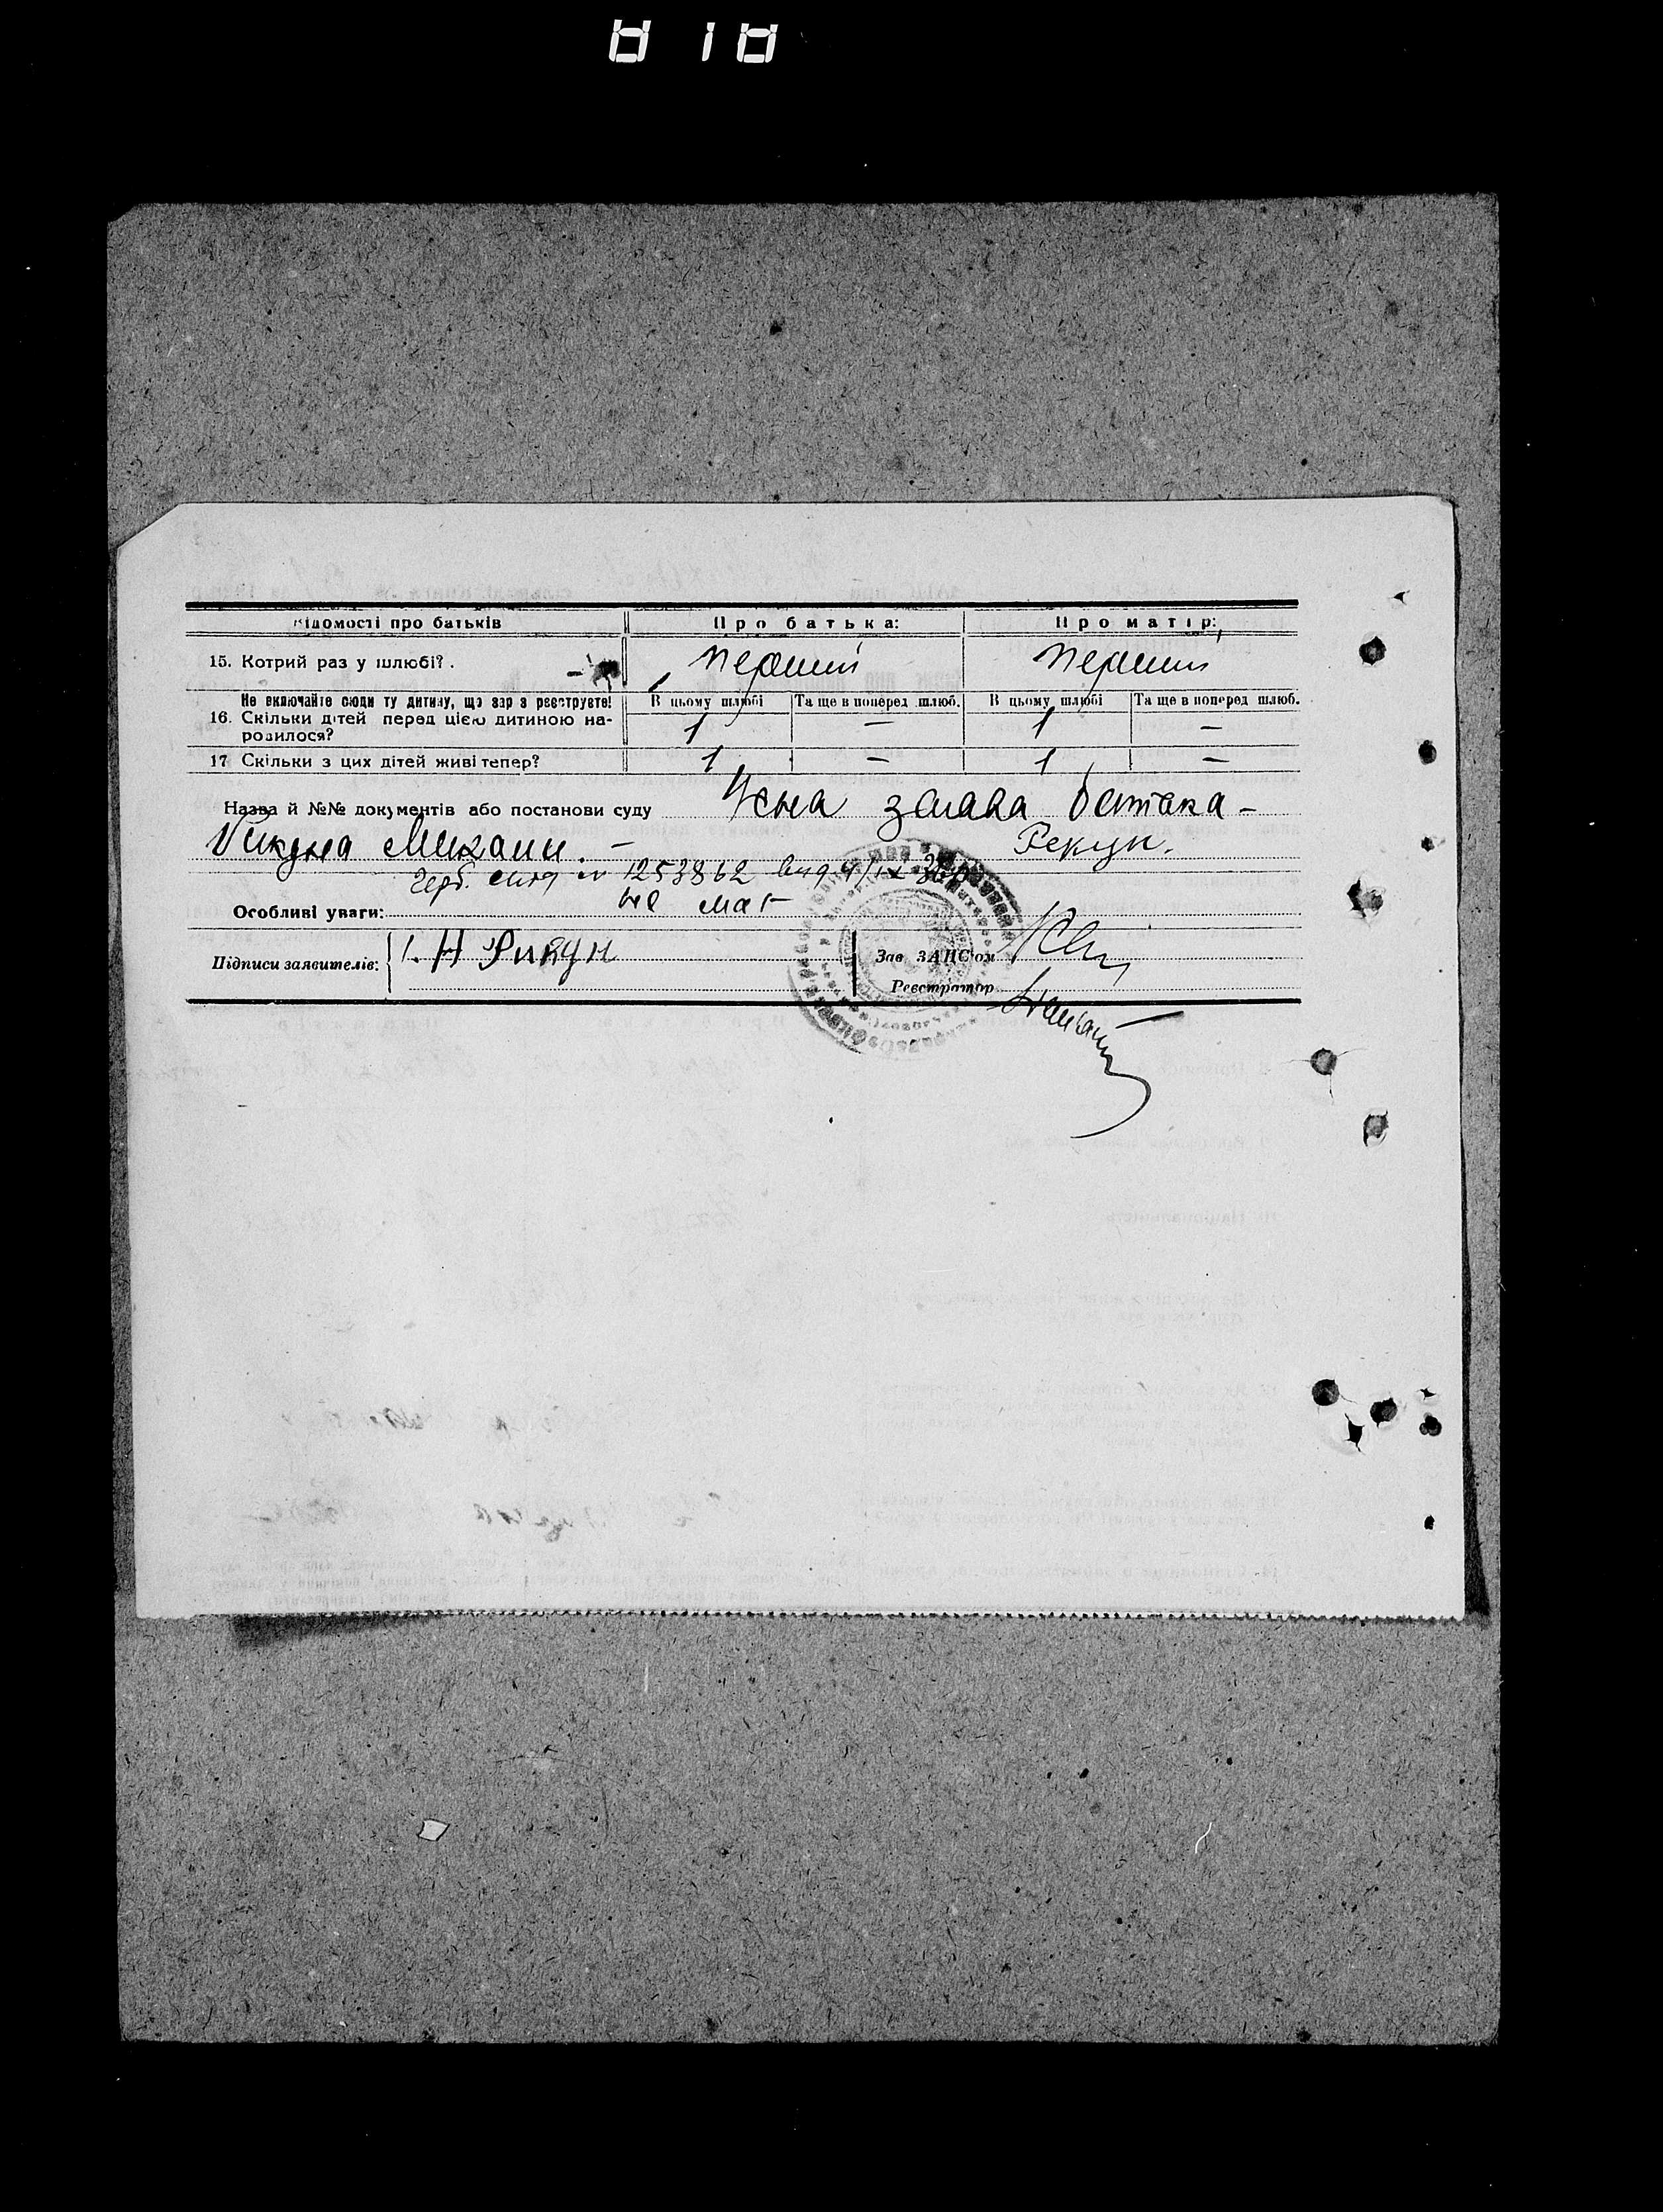 Відомості про батьків Про батька: Про матір:
15. Котрий раз у шлюбі? . перший перший
Не включайте сюди ту дитину, що зараз реєструєте! В цьому шлюбі Та ще в поперед. шлюб. В цьому шлюбі Та ще в поперед. шлюб.
16. Скільки дітей перед цією дитиною на- 1 — 1 —
родилося?
17 Скільки з цих дітей живі тепер? 1 — 1 —
Назва й №№ документів або постанови суду Усна заява батька –
Рикуна Рекун.
1253862
Особливі уваги: не має
Підписи заявителів: 1. Н Рикун Зав ЗАГС'ом
Реєстратор